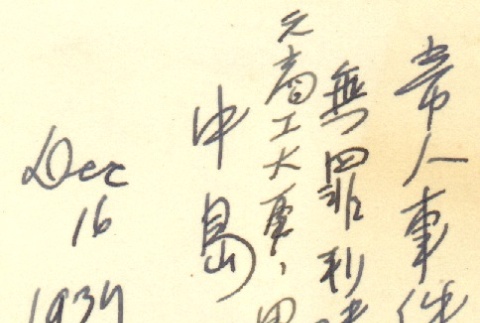 帝人事件
無罪判決
元商工大臣、男
中島
Dec
16
1937